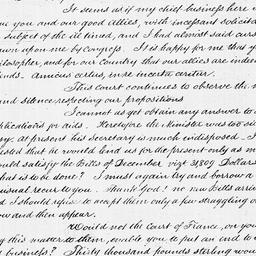 It seems as if my chief business here w
ue you and our good allies, with incessant solicitat
subject of the ill timed, and I had almost said curs
awn upon me by Congress. It is happy for me that y
ilosopher, and for our Country that our allies are indee
iends. Amicus certus, in re incerta cernitur.
This court continues to observe the m
and silence respecting our propositions
I cannot as yet obtain any answer to a
plications for aids. Heretofore the Minister was too sic
ry: at present his Secretary is much indisposed. I
ested that he would lend us for the present only as m
ould satisfy the Bills of December vizt 31,809 Dollars
hat is to be done? I must again try and borrow a
usual recur to you. Thank God! no new Bills arriv
d I should refuse to accept them only a few straggling o
ow and then appear.
Would not the Court of France, on you
g this matter to them, enable you to put an end to u
d business? Thirty thousand pounds sterling wou